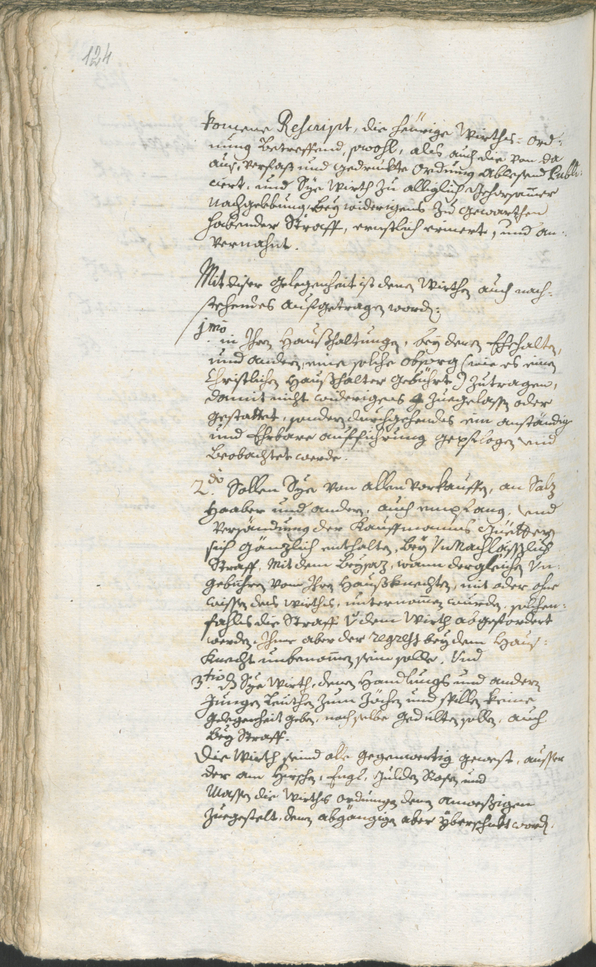 124
komene Rescript, die heürige Wirths: Ord:
nung betreffend, sowohl, als auch die von da
aus verfaß und gedruckte Ordnung ablesend Publi:
ciert, und Sye Wirth zu allzeitlich gehorsamer
Nachgebbung, bey widerigens zu gewarthen
habender Straff, ernstlich erinnert, und an:
vermahnt.
Mit diser Gelegenheit ist denen Wirthen auch nach:
stehendes aufgetragen worden:
1mo
in Ihren Haußhaltungen, bey denen Ehehalten,
und anderen, eine solche Obsorg (wie es einen
Christlichen Haußhalter gebührt) zutragen,
damit nicht widerigens zuegelassen oder
gestattet, sondern durchgehendes ein anständige
und Ehrbare aufführung gepflogen und
beobachtet werde.
2do Sollen Sye von allen Vorkauffen, an Salz
Haaber und andern, auch empfang und
Versändung der Kauffmanns Güettern
sich gänzlich enthalten, bey Unnachläßlich
Straff. Mit dem beysaz, wann dergleichen Un:
gebühren vom Ihren Haußknechten, mit oder ohne
wissen des Wirths, unternomen wurden, solchen:
fahls die Straff von dem Wirth abgefordert
werden, Ihme aber der regreß bey dem Hauß:
Knecht unbenommen sein solle. Und
3tio Sye Wirth, denen Handlungs und andern
Jungen Leuthen zum Zöchen und spillen keine
gelegenheit geben, noch selbe gedulten sollen, auch
bey Straff.
Die Wirth seind alle gegenwertig gewest, ausser
der am Hirschen, Engl, Gulden Rosen und
Massen die Wirths Ordnungen denen anweßigen
zuegestelt, denen abgängigen aber yberschickt worden.